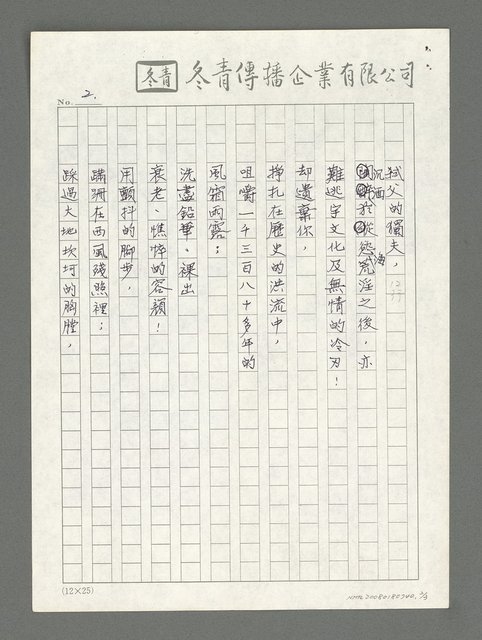 冬青 冬青傳播企業有限公司
No. 2.
弒父的獨夫，
沉酒於從慾荒淫之後，亦
難逃宇文化及無情的冷刃！
却遺棄你，
掙扎在歷史的洪流中，
咀嚼一千三百八十多年的
風霜雨露；
洗盡鉛華、裸出
衰老、憔悴的容顏！
用顫抖的腳步，
蹣跚在西風殘照裡；
踩過大地坎坷的胸膛，
(12×25)